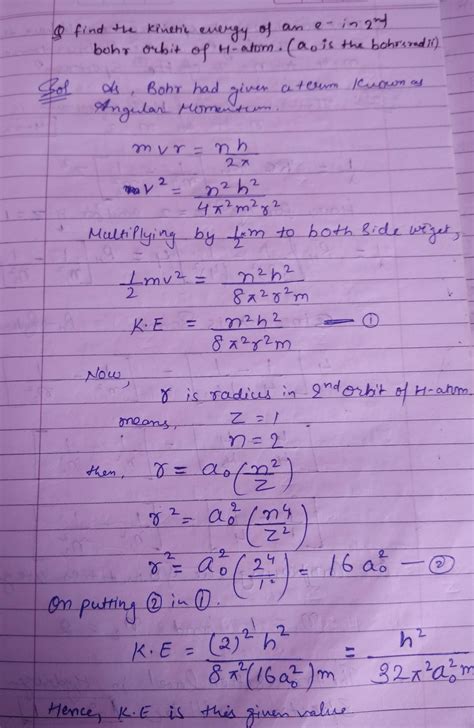 Q find the Kinetic energy of an e- in 2nd
bohr orbit of H-atom. (a₀ is the bohrs radii)
Sol As, Bohr had given a term known as
Angular Momentum.
mvr = nh/2π
v² = n²h²/4π²m²r²
Multiplying by 1/2 m to both side we get,
1/2 mv² = n²h²/8π²r²m
K.E = n²h²/8π²r²m — ①
Now,
r is radius in 2nd orbit of H-atom
means, Z = 1
n = 2
then, r = a₀(n²/Z)
r² = a₀²(n4/Z²)
r² = a₀²(2⁴/1²) = 16 a₀² — ②
On putting ② in ①.
K.E = (2)² h²/8π²(16a₀²)m = h²/32π²a₀²m
Hence, K.E is this given value